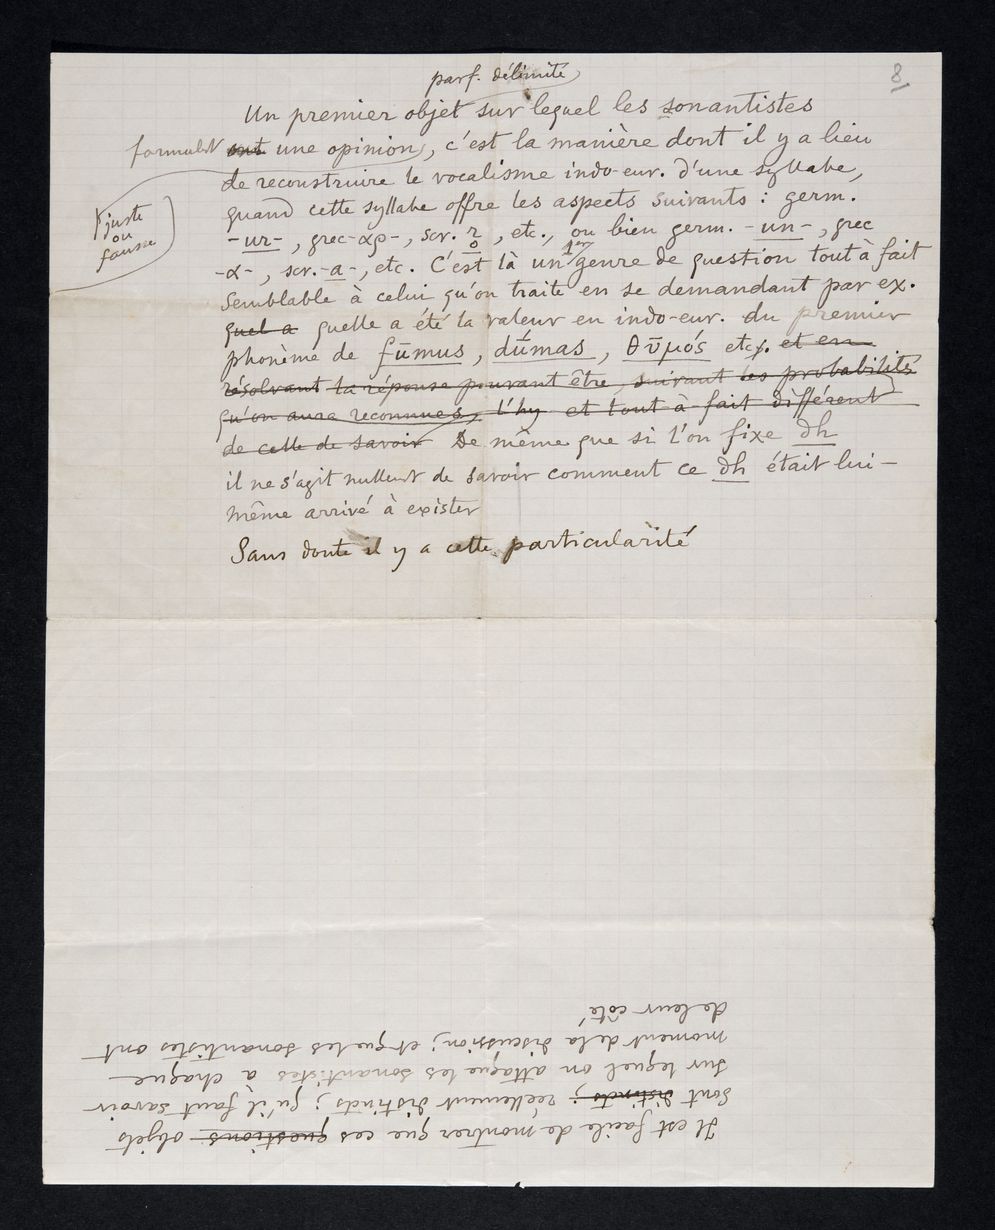 8
parf. délimité
Un premier objet sur lequel les sonantistes
formulent ont une opinion, c'est la manière dont il y a lieu
de reconstruire le vocalisme indo-eur. d'une syllabe,
juste
ou
fausse
quand cette syllabe offre les aspects suivants : germ.
-ur-, grec -αρ-, scr. r̥, etc., ou bien germ. -un-, grec
-α-, scr. -a-, etc. C'est là un 1er genre de question tout à fait
semblable à celui qu'on traite en se demandant par ex.
quel a quelle a été la valeur en indo-eur. du premier
phonème de fūmus, dūmas, θῡμός etc. et en
résolvant la réponse pouvant être, suivant les probabilités
qu'on aura reconnues, l'hy et tout à fait différent
de celle de savoir De même que si l'on fixe dh
il ne s'agit nullemt de savoir comment ce dh était lui-
même arrivé à exister
Sans doute il y a cette particularité
Il est facile de montrer que ces questions objets
sont distincts ; réellement distincts ; qu'il faut savoir
sur lequel on attaque les sonantistes à chaque
moment de la discussion ; et que les sonantistes ont
de leur côté